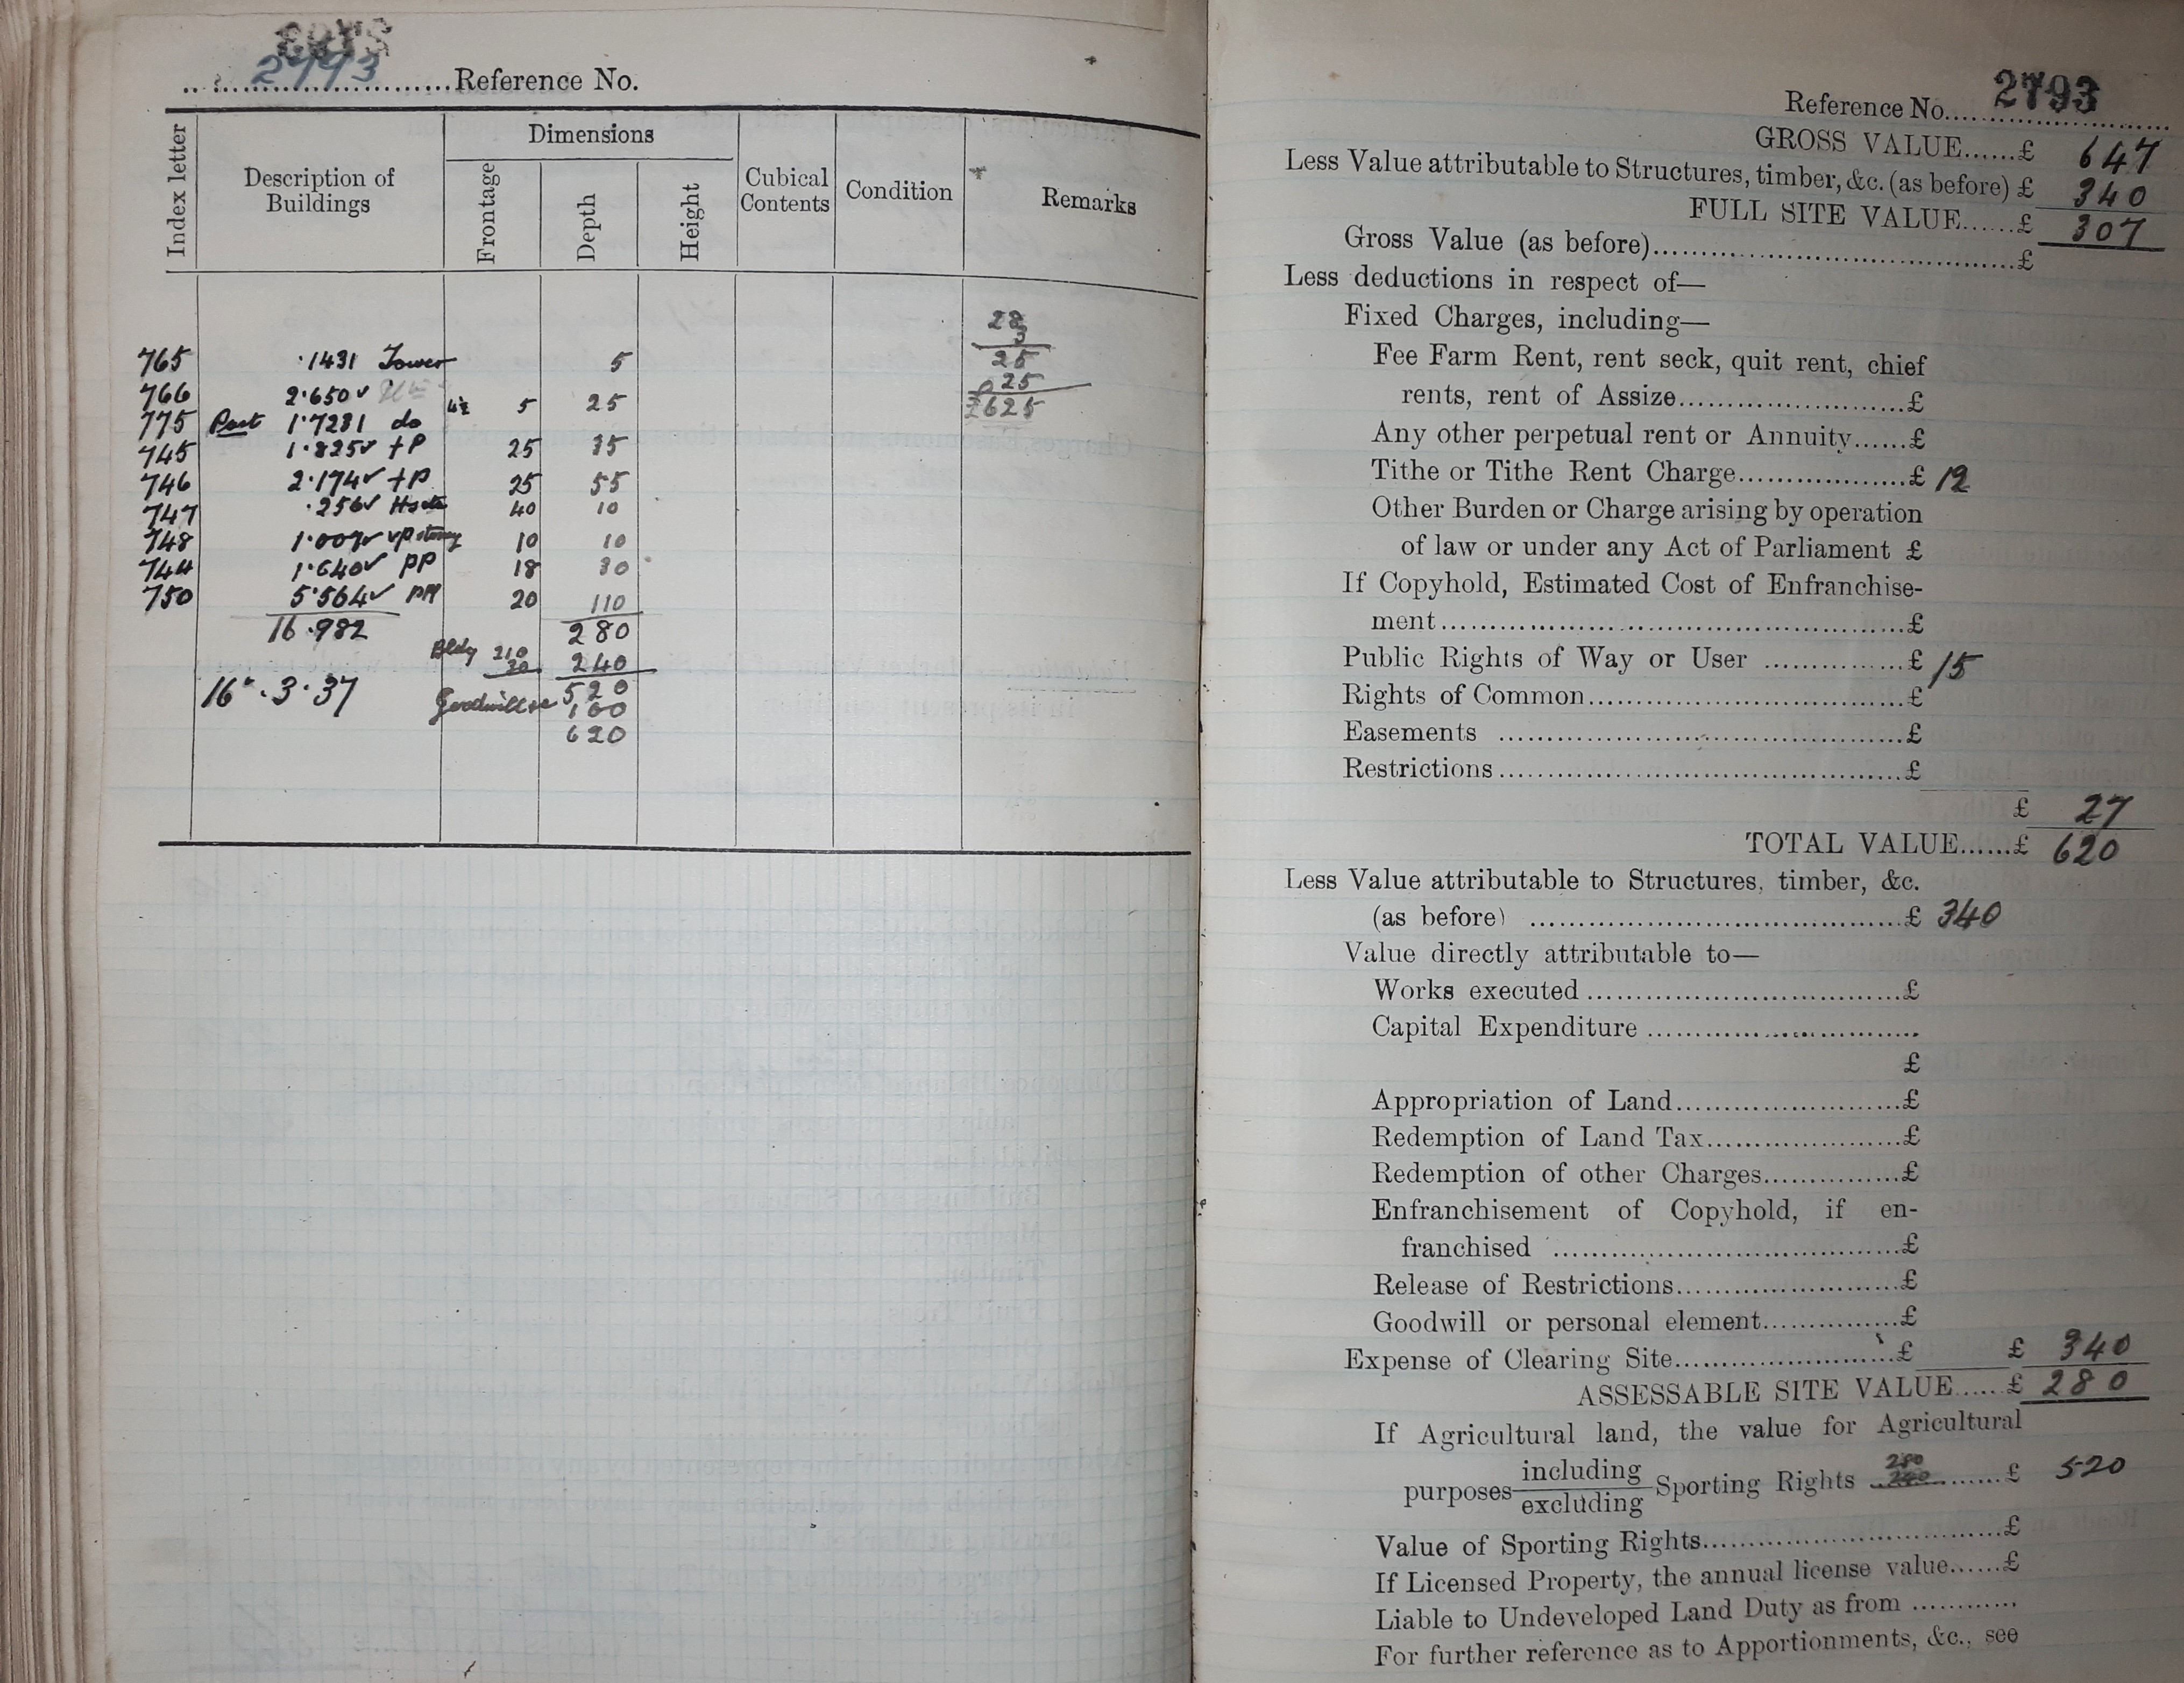 2793 Reference No.
Index letter
Description of Buildings
Dimensions
Frontage
Depth
Height
Cubical Contents
Condition
Remarks
28
3
25
25
£625
765 .1431 Tower 5
766 2.650
775 Part 1.7281 do 4½ 5 25
745 1.825 tP 25 35
746 2.174 tP 25 55
747 .256 40 10
748 1.009 10 10
744 1.640 PP 18 30
750 5.564 20 110
16.982 280
Bldg 210
30 240
16a.3.37 520
Goodwill &c 100
620
Reference No. 2793
GROSS VALUE......£ 647
Less Value attributable to Structures, timber, &c. (as before) £ 340
FULL SITE VALUE......£ 307
Gross Value (as before)......£
Less deductions in respect of—
Fixed Charges, including—
Fee Farm Rent, rent seck, quit rent, chief
rents, rent of Assize......£
Any other perpetual rent or Annuity......£
Tithe or Tithe Rent Charge......£ 12
Other Burden or Charge arising by operation
of law or under any Act of Parliament £
If Copyhold, Estimated Cost of Enfranchise-
ment......£
Public Rights of Way or User ......£ 15
Rights of Common......£
Easements ......£
Restrictions......£
£ 27
TOTAL VALUE......£ 620
Less Value attributable to Structures, timber, &c.
(as before) ......£ 340
Value directly attributable to—
Works executed ......£
Capital Expenditure ......
£
Appropriation of Land......£
Redemption of Land Tax......£
Redemption of other Charges......£
Enfranchisement of Copyhold, if en-
franchised ......£
Release of Restrictions......£
Goodwill or personal element......£
Expense of Clearing Site......£ £ 340
ASSESSABLE SITE VALUE......£ 280
If Agricultural land, the value for Agricultural
purposes including
excluding Sporting Rights ......£ 520
Value of Sporting Rights......£
If Licensed Property, the annual license value......£
Liable to Undeveloped Land Duty as from ............
For further reference as to Apportionments, &c., see